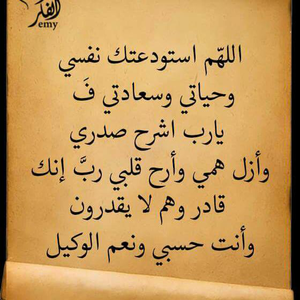 الفكر
emy
اللهّم استودعتك نفسي
وحياتي وسعادتي فَ
يارب اشرح صدري
وأزل همي وأرح قلبي ربَّ إنك
قادر وهم لا يقدرون
وأنت حسبي ونعم الوكيل